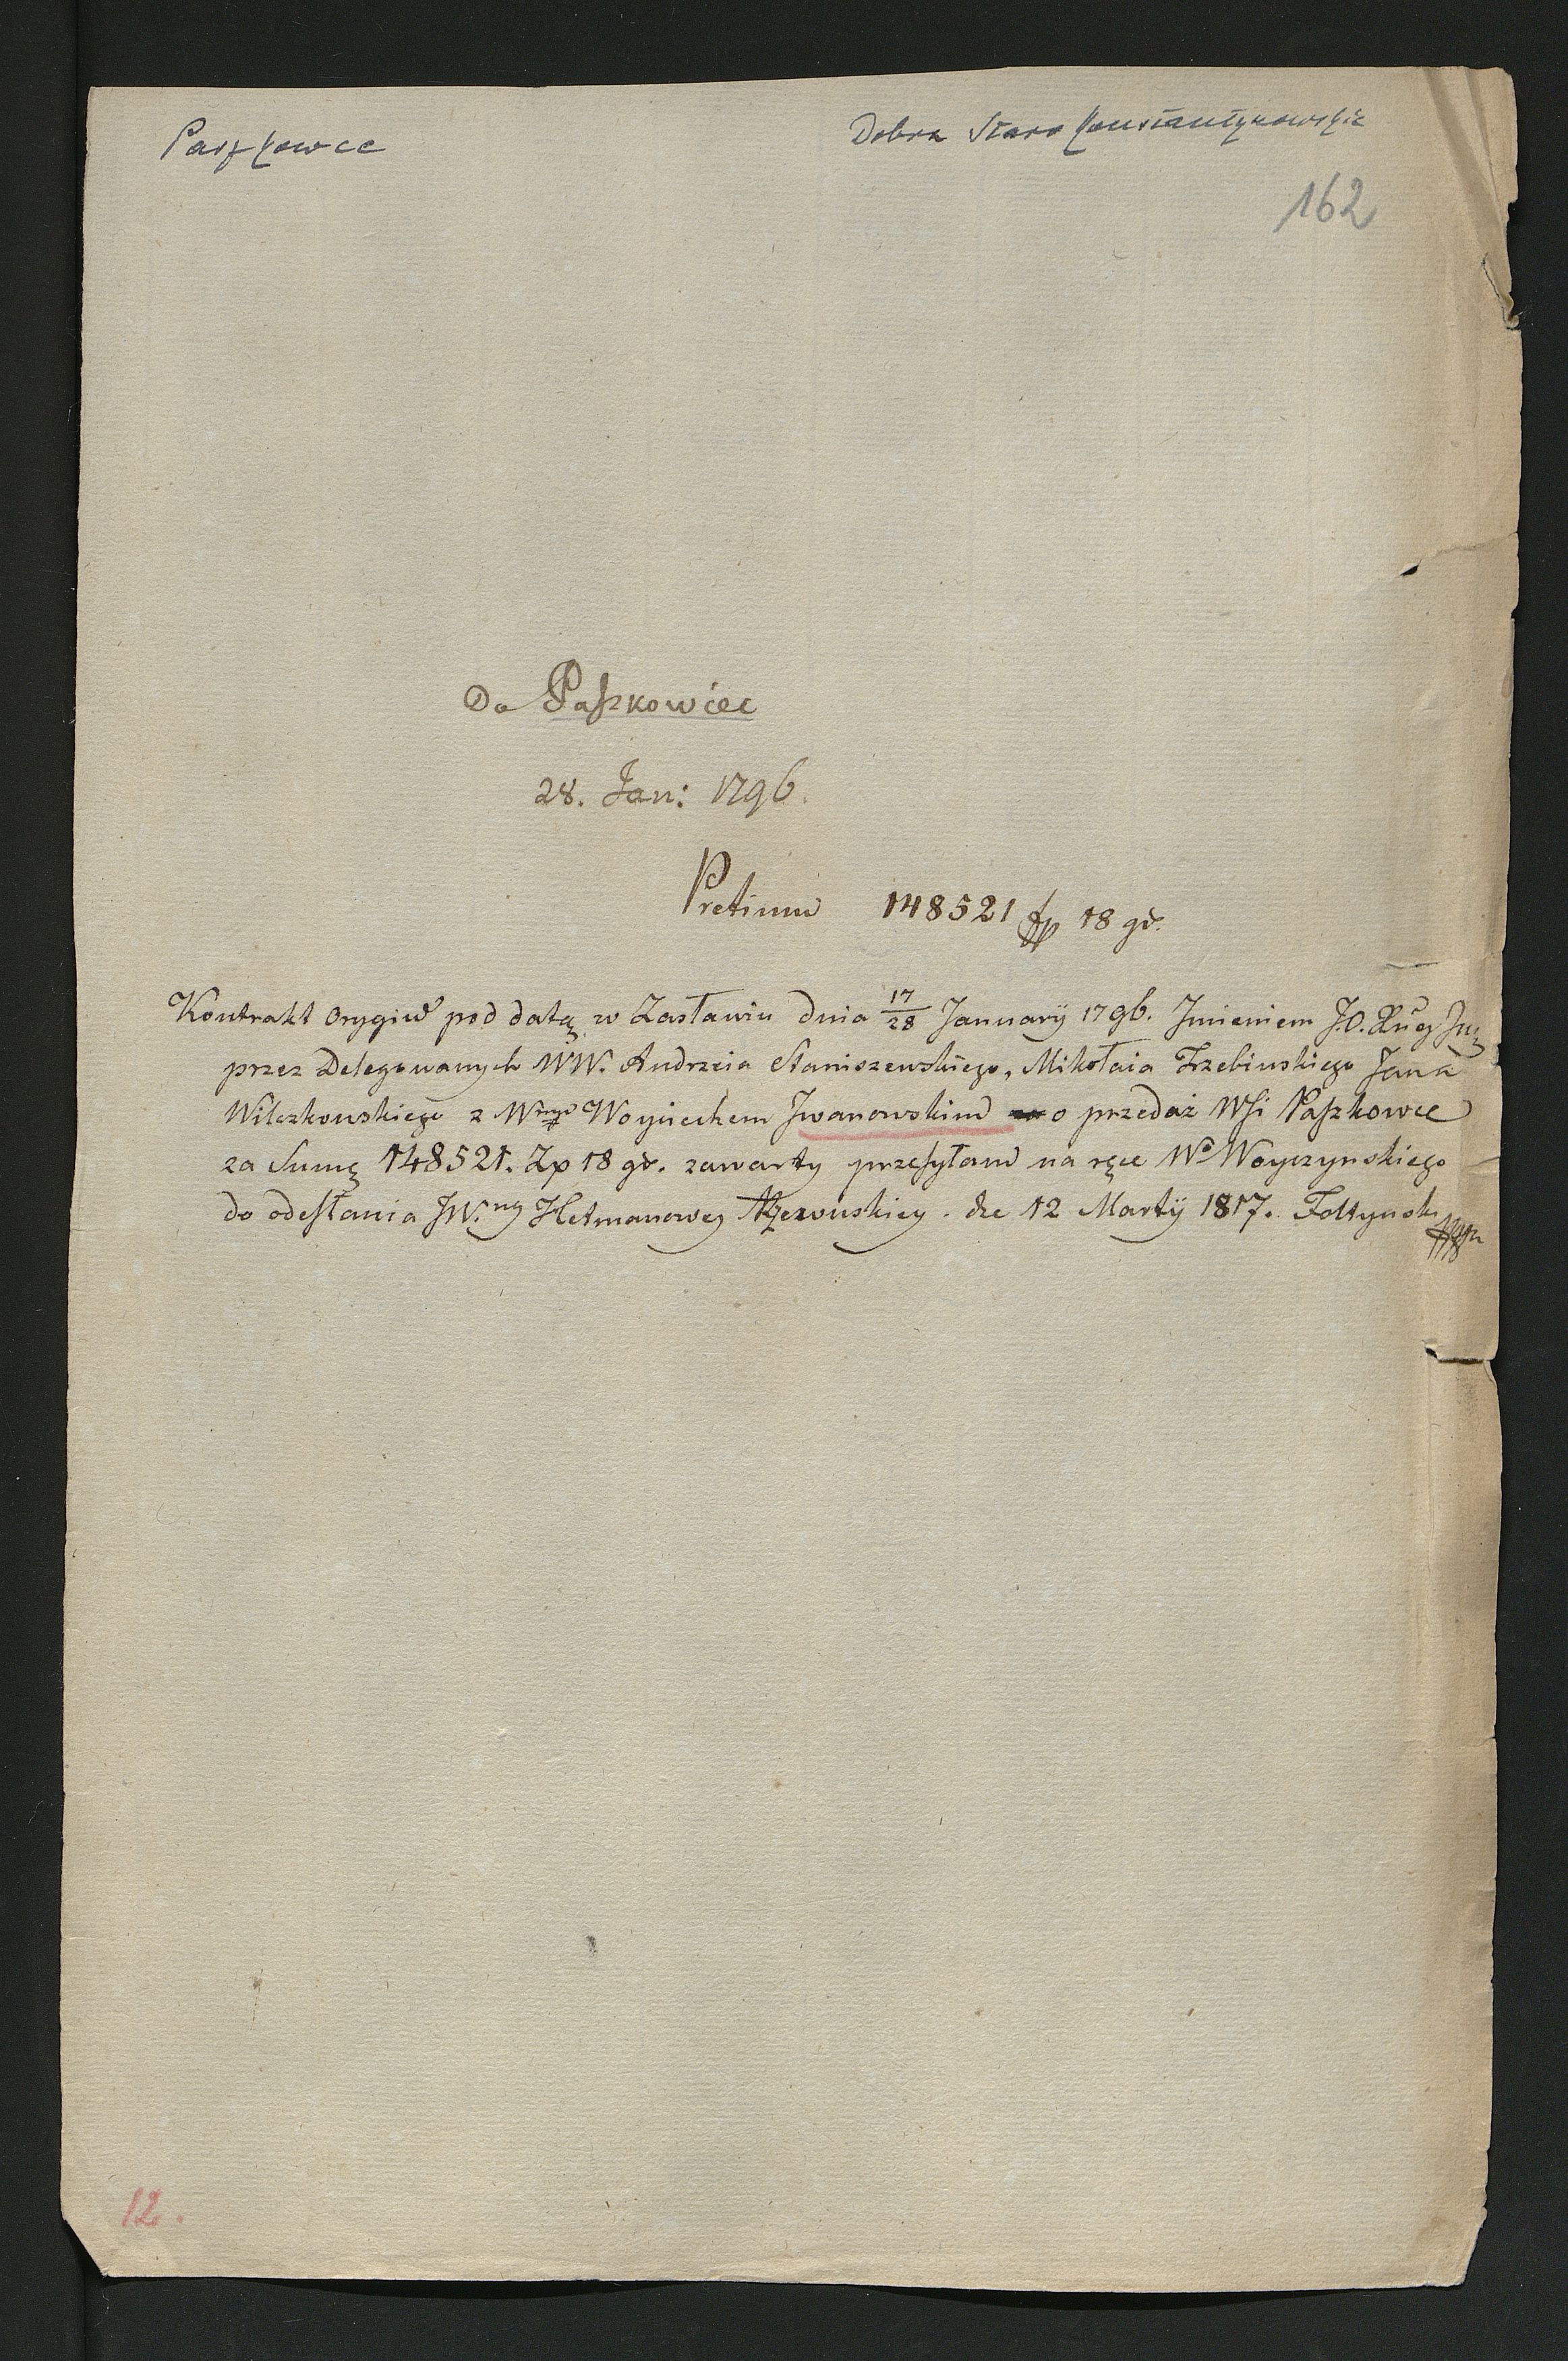 Paszkowce
Dobra Staro Konstantynowskie
162
Do Paszkowiec
28. Jan: 1796.
Pretium 148521 fp 18 gr.
Kontrakt Orygin̄ pod datą w Zasławiu dnia 17/28 Januarij 1796. Jmieniem J.O.
przez Delegowanych WW. Andrzeia Staniszewskiego, Mikołaia Trzebinskiego Jana
Wilczkowskiego z Wnym Woyciechem Jwanowskim o przedaż Wsi Paszkowce
za Sumę 148521. Zp 18 gr. zawarty przesyłam na ręce Wo Woyczynskiego
do odesłania JW.ney Hetmanowey Rzewuskiey. de 12 Martij 1817.
12.